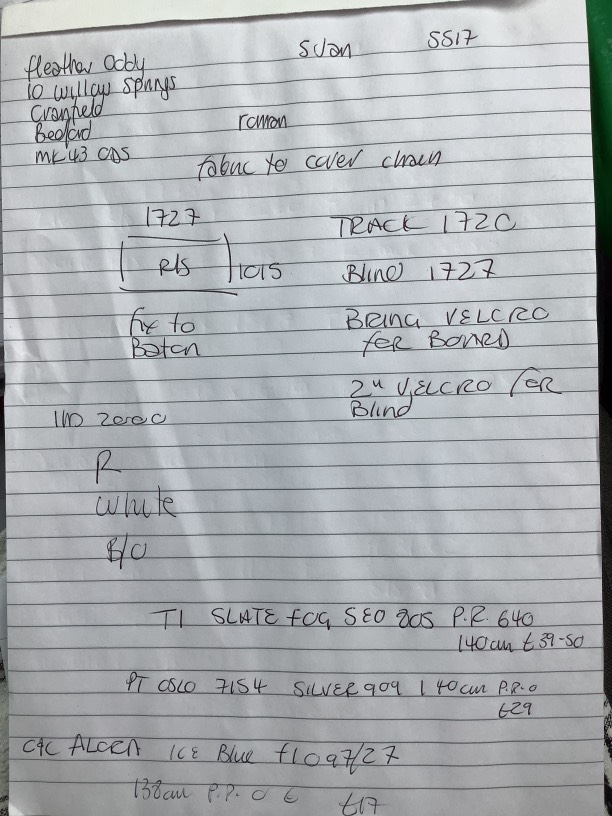 Heather Oddy
Susan SS17
10 Willow Springs
Cranfield
Bedford
MK43 0DS
roman
fabric to cover chain
1727
R/S 1015
fix to
Baton
TRACK 1720
Blind 1727
BRING VELCRO
FOR BOARD
2" VELCRO FOR
Blind
H/D 2000
R
White
B/O
T1 SLATE FOG SEO 805 P.R. 640
140cm £39-50
PT OSLO 7154 SILVER 909 140cm P.R.O
£29
C&C ICE Blue F1097/27
138cm P.R. O £ £17